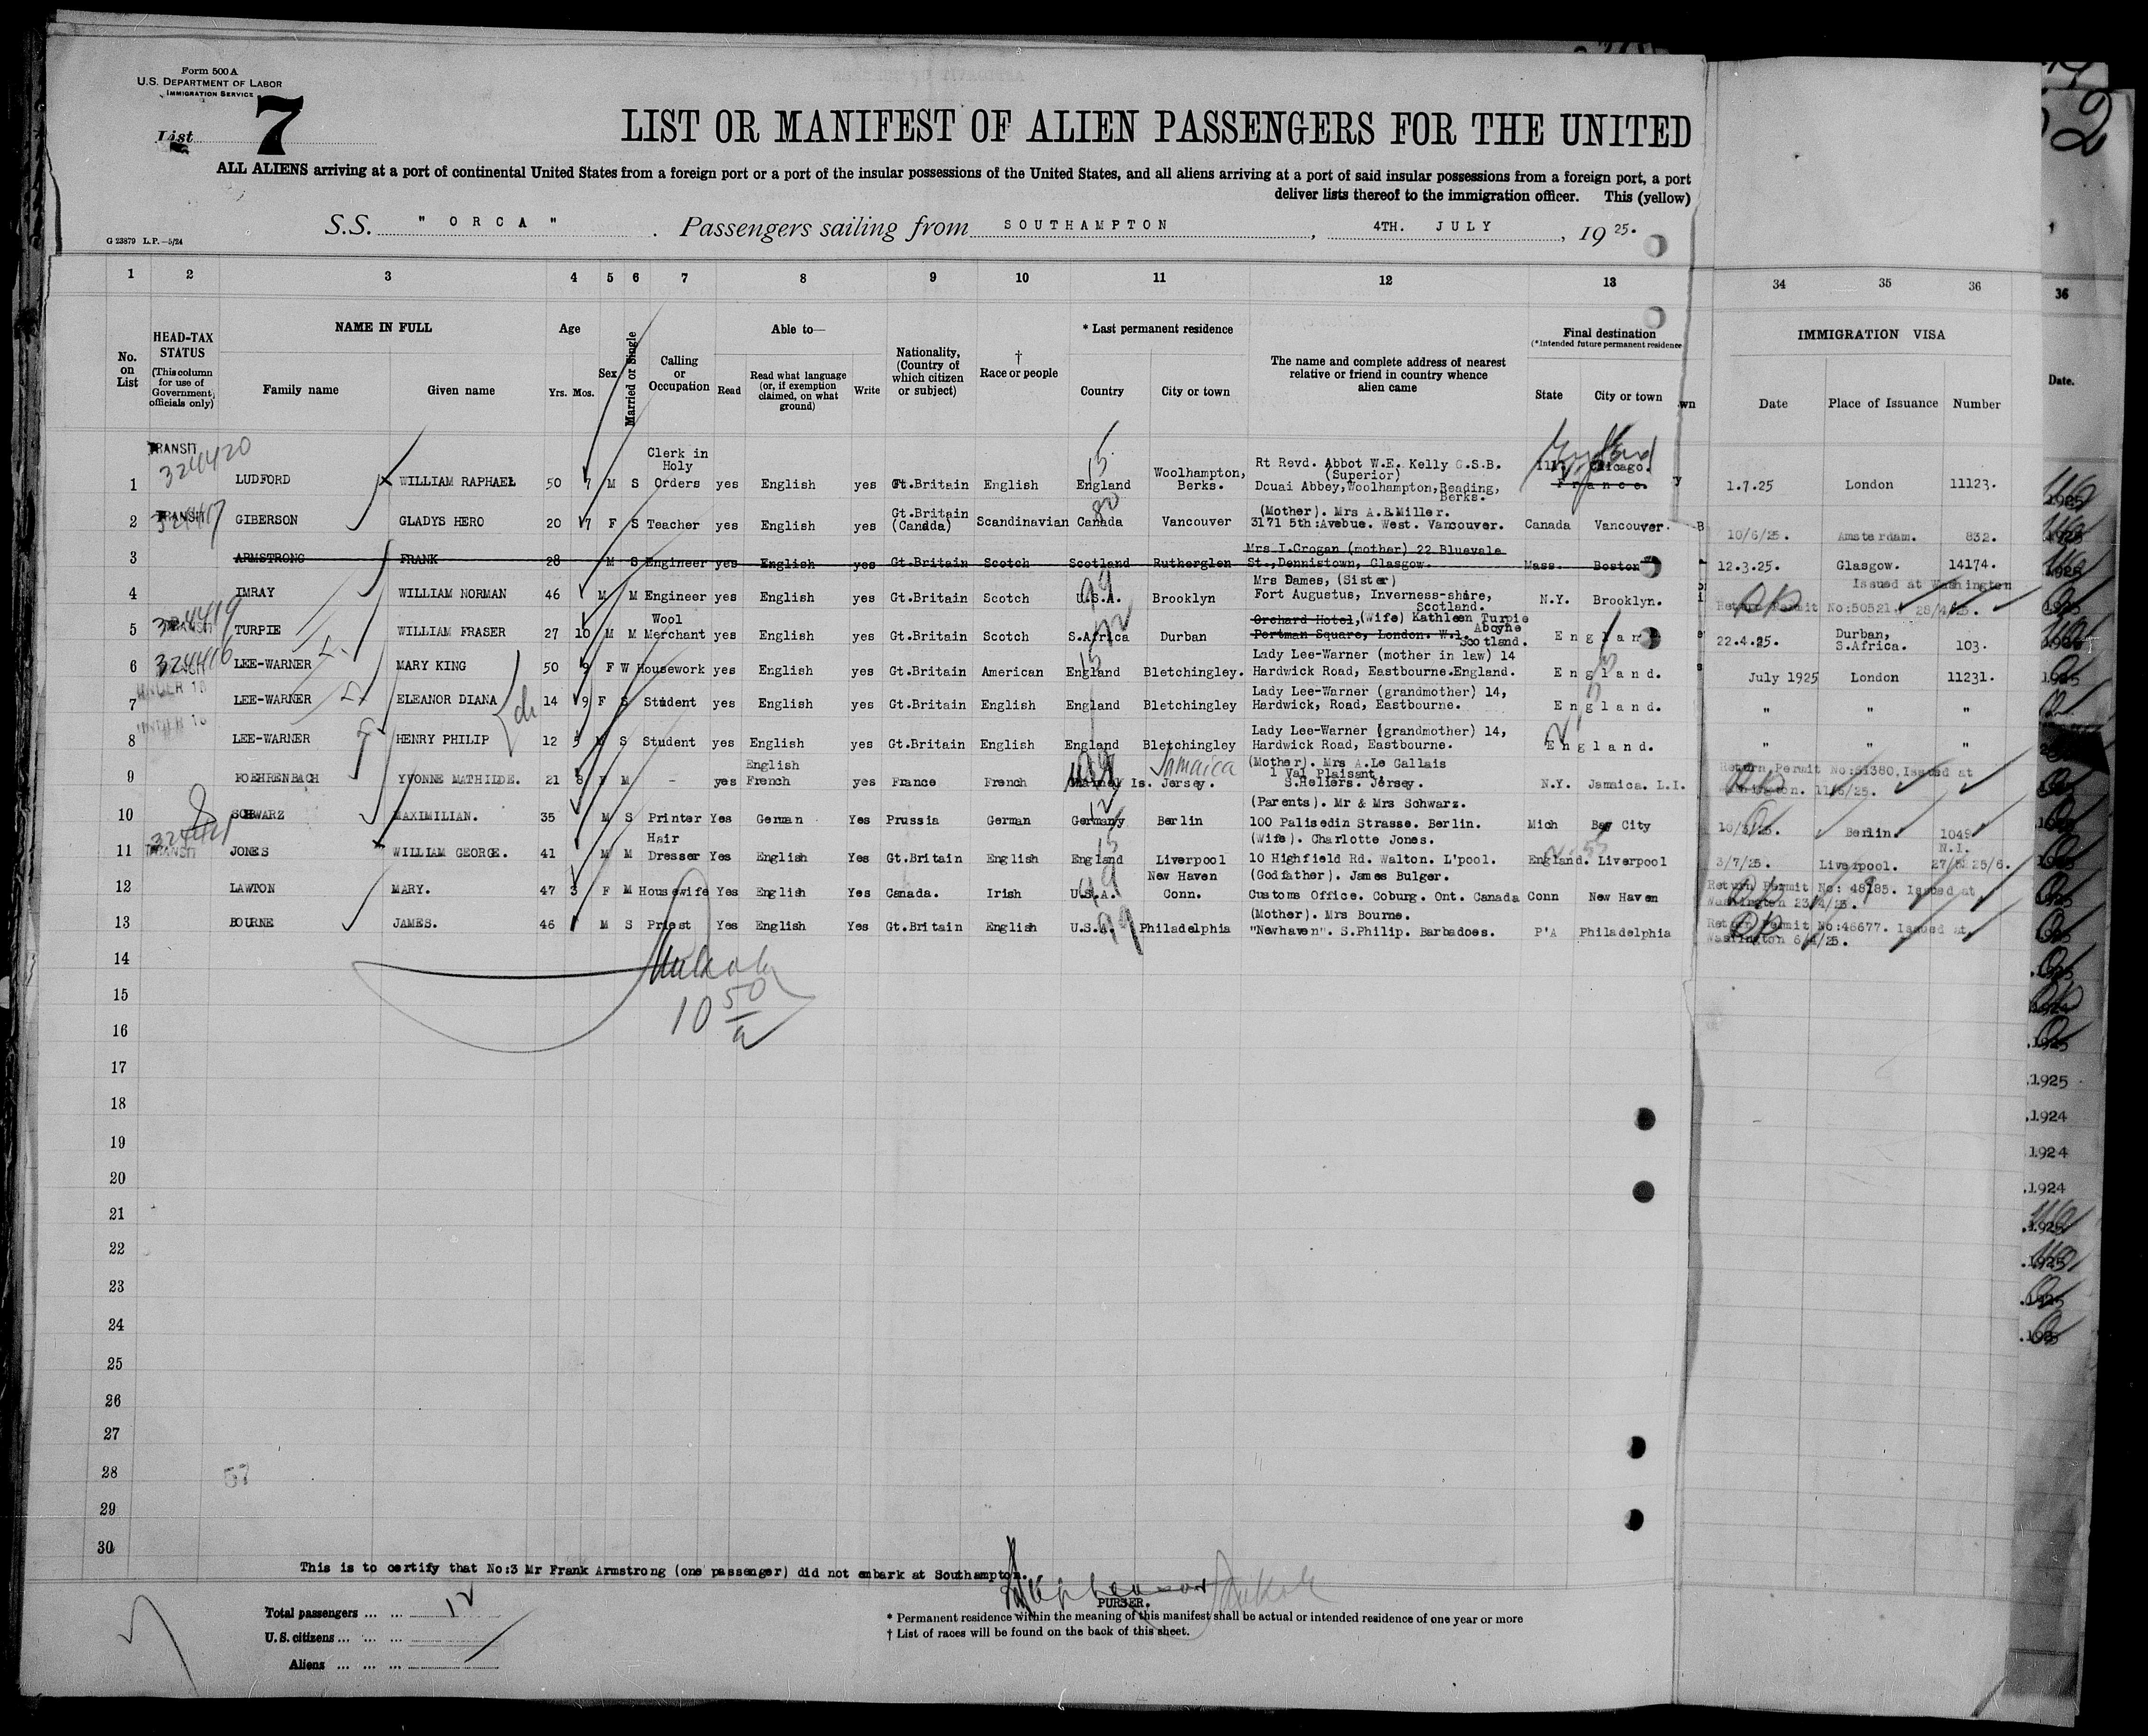 Form 500 A
U.S. DEPARTMENT OF LABOR
IMMIGRATION SERVICE
List 7
LIST OR MANIFEST OF ALIEN PASSENGERS FOR THE UNITED
ALL ALIENS arriving at a port of continental United States from a foreign port or a port of the insular possessions of the United States, and all aliens arriving at a port of said insular possessions from a foreign port, a port
deliver lists thereof to the immigration officer. This (yellow)
S.S. " ORCA " . Passengers sailing from SOUTHAMPTON , 4TH. JULY , 19 25.
G 23879 L.P.—5/24
1 2 3 4 5 6 7 8 9 10 11 12 13 34 35 36 36
No. on List
HEAD-TAX STATUS
(This column for use of Government officials only)
NAME IN FULL
Family name Given name
Age
Yrs. Mos.
Sex
Married or Single
Calling or Occupation
Able to—
Read
Read what language (or, if exemption claimed, on what ground)
Write
Nationality, (Country of which citizen or subject)
† Race or people
* Last permanent residence
Country City or town
The name and complete address of nearest relative or friend in country whence alien came
Final destination
(*Intended future permanent residence
State City or town
wn
IMMIGRATION VISA
Date Place of Issuance Number
Date.
TRANSIT 324420
1 LUDFORD WILLIAM RAPHAEL 50 7 M S Clerk in Holy Orders yes English yes Gt.Britain English England Woolhampton, Berks. Rt Revd. Abbot W.E. Kelly O.S.B. (Superior) Douai Abbey, Woolhampton, Reading, Berks. Ill. Chicago. France. 1.7.25 London 11123.
TRANSIT
2 GIBERSON GLADYS HERO 20 7 F S Teacher yes English yes Gt.Britain (Canada) Scandinavian Canada Vancouver (Mother). Mrs A.B.Miller. 3171 5th:Avebue. West. Vancouver. Canada Vancouver. 10/6/25. Amsterdam. 832.
3 ARMSTRONG FRANK 28 M S Engineer yes English yes Gt.Britain Scotch Scotland Rutherglen Mrs I.Crogan (mother) 22 Bluevale St.,Dennistown, Glasgow. Mass. Boston 12.3.25. Glasgow. 14174.
4 IMRAY WILLIAM NORMAN 46 M M Engineer yes English yes Gt.Britain Scotch U.S.A. Brooklyn Mrs Dames, (Sister) Fort Augustus, Inverness-shire, Scotland. N.Y. Brooklyn. Return Permit No:50521. 28/4/25. Issued at Washington
324419 TRANSIT
5 TURPIE WILLIAM FRASER 27 10 M M Wool Merchant yes English yes Gt.Britain Scotch S.Africa Durban Orchard Hotel, (Wife) Kathleen Turpie Portman Square, London. W.1. Aboyne Scotland. England 22.4.25. Durban, S.Africa. 103.
324416
6 LEE-WARNER MARY KING 50 9 F W Housework yes English yes Gt.Britain American England Bletchingley. Lady Lee-Warner (mother in law) 14 Hardwick Road, Eastbourne.England. England. July 1925 London 11231.
UNDER 16
7 LEE-WARNER ELEANOR DIANA 14 9 F S Student yes English yes Gt.Britain English England Bletchingley Lady Lee-Warner (grandmother) 14, Hardwick, Road, Eastbourne. England. " " "
UNDER 16
8 LEE-WARNER HENRY PHILIP 12 5 M S Student yes English yes Gt.Britain English England Bletchingley Lady Lee-Warner (grandmother) 14, Hardwick Road, Eastbourne. England. " " "
9 ROEHRENBACH YVONNE MATHILDE. 21 8 F M - yes English French yes France French Is. Jersey. Jamaica (Mother). Mrs A.Le Gallais 1 Val Plaisant, S.Heliers. Jersey. N.Y. Jamaica. L.I. Return Permit No:61380,Issued at Washington. 11/6/25.
10 SCHWARZ MAXIMILIAN. 35 M S Printer Yes German Yes Prussia German Germany Berlin (Parents). Mr & Mrs Schwarz. 100 Palisedin Strasse. Berlin. Mich Bay City 10/3/25. Berlin. 1049
TRANSIT
11 JONES WILLIAM GEORGE. 41 M M Hair Dresser Yes English Yes Gt.Britain English England Liverpool (Wife). Charlotte Jones. 10 Highfield Rd. Walton. L'pool. England. Liverpool 3/7/25. Liverpool. N.I.
12 LAWTON MARY. 47 3 F M Housewife Yes English Yes Canada. Irish U.S.A. New Haven Conn. (Godfather). James Bulger. Customs Office. Coburg. Ont. Canada Conn New Haven Return Permit No: 48185. Issued at Washington 23/4/25.
13 BOURNE JAMES. 46 M S Priest Yes English Yes Gt.Britain English U.S.A. Philadelphia (Mother). Mrs Bourne. "Newhaven". S.Philip. Barbadoes. P'A Philadelphia Return Permit No:46677. Issued at Washington 6/4/25.
14
15
16
10 50
17
.1925
18
.1924
19
1924
20
.1924
21
.1925
22
.1925
23
.1925
24
25
26
27
28
57
29
30
This is to certify that No:3 Mr Frank Armstrong (one passenger) did not embark at Southampton.
PURSER.
Total passengers ... ... 12
U.S. citizens ... ... ...
Aliens ... ... ...
* Permanent residence within the meaning of this manifest shall be actual or intended residence of one year or more
† List of races will be found on the back of this sheet.